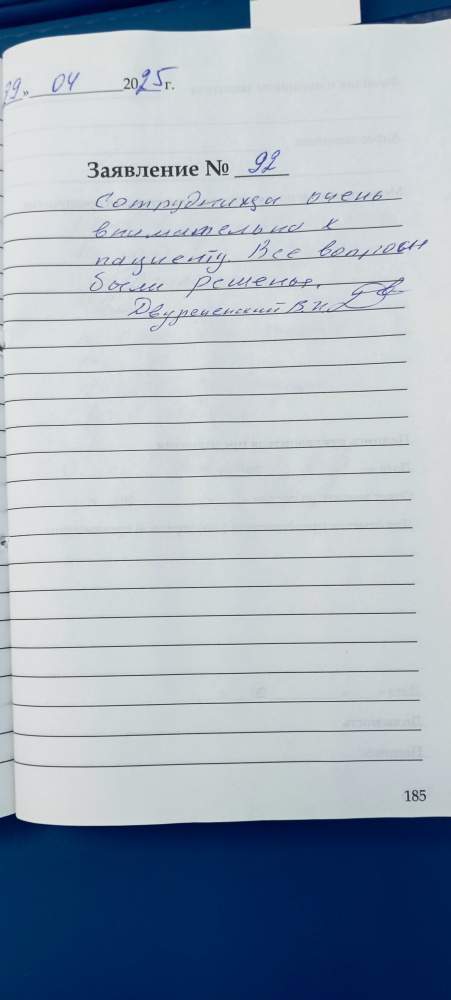 29» 04 2025г.
Заявление № 92
Сотрудница очень
внимательна к
пациенту. Все вопросы
были решены.
Двуреченский В.И.
185